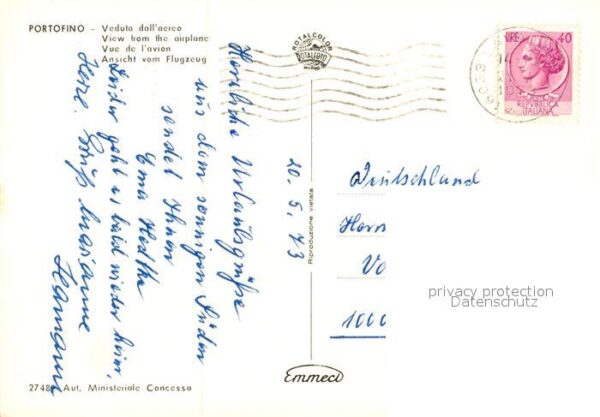 PORTOFINO - Veduta dall'aereo
View from the airplane
Vue de l'avion
Ansicht vom Flugzeug
ROTALCOLOR
ROTALFOTO
LIRE 40
REPUBBLICA
ITALIANA
Herzliche Urlaubsgrüße
aus dem sonnigen Süden
sendet Ihnen
Erna
Leider geht es bald wieder heim.
Herzl. Gruß Marianne
20.5.73
Riproduzione vietata
Deutschland
Herrn
1000
privacy protection
Datenschutz
Emmeci
Aut. Ministeriale Concessa